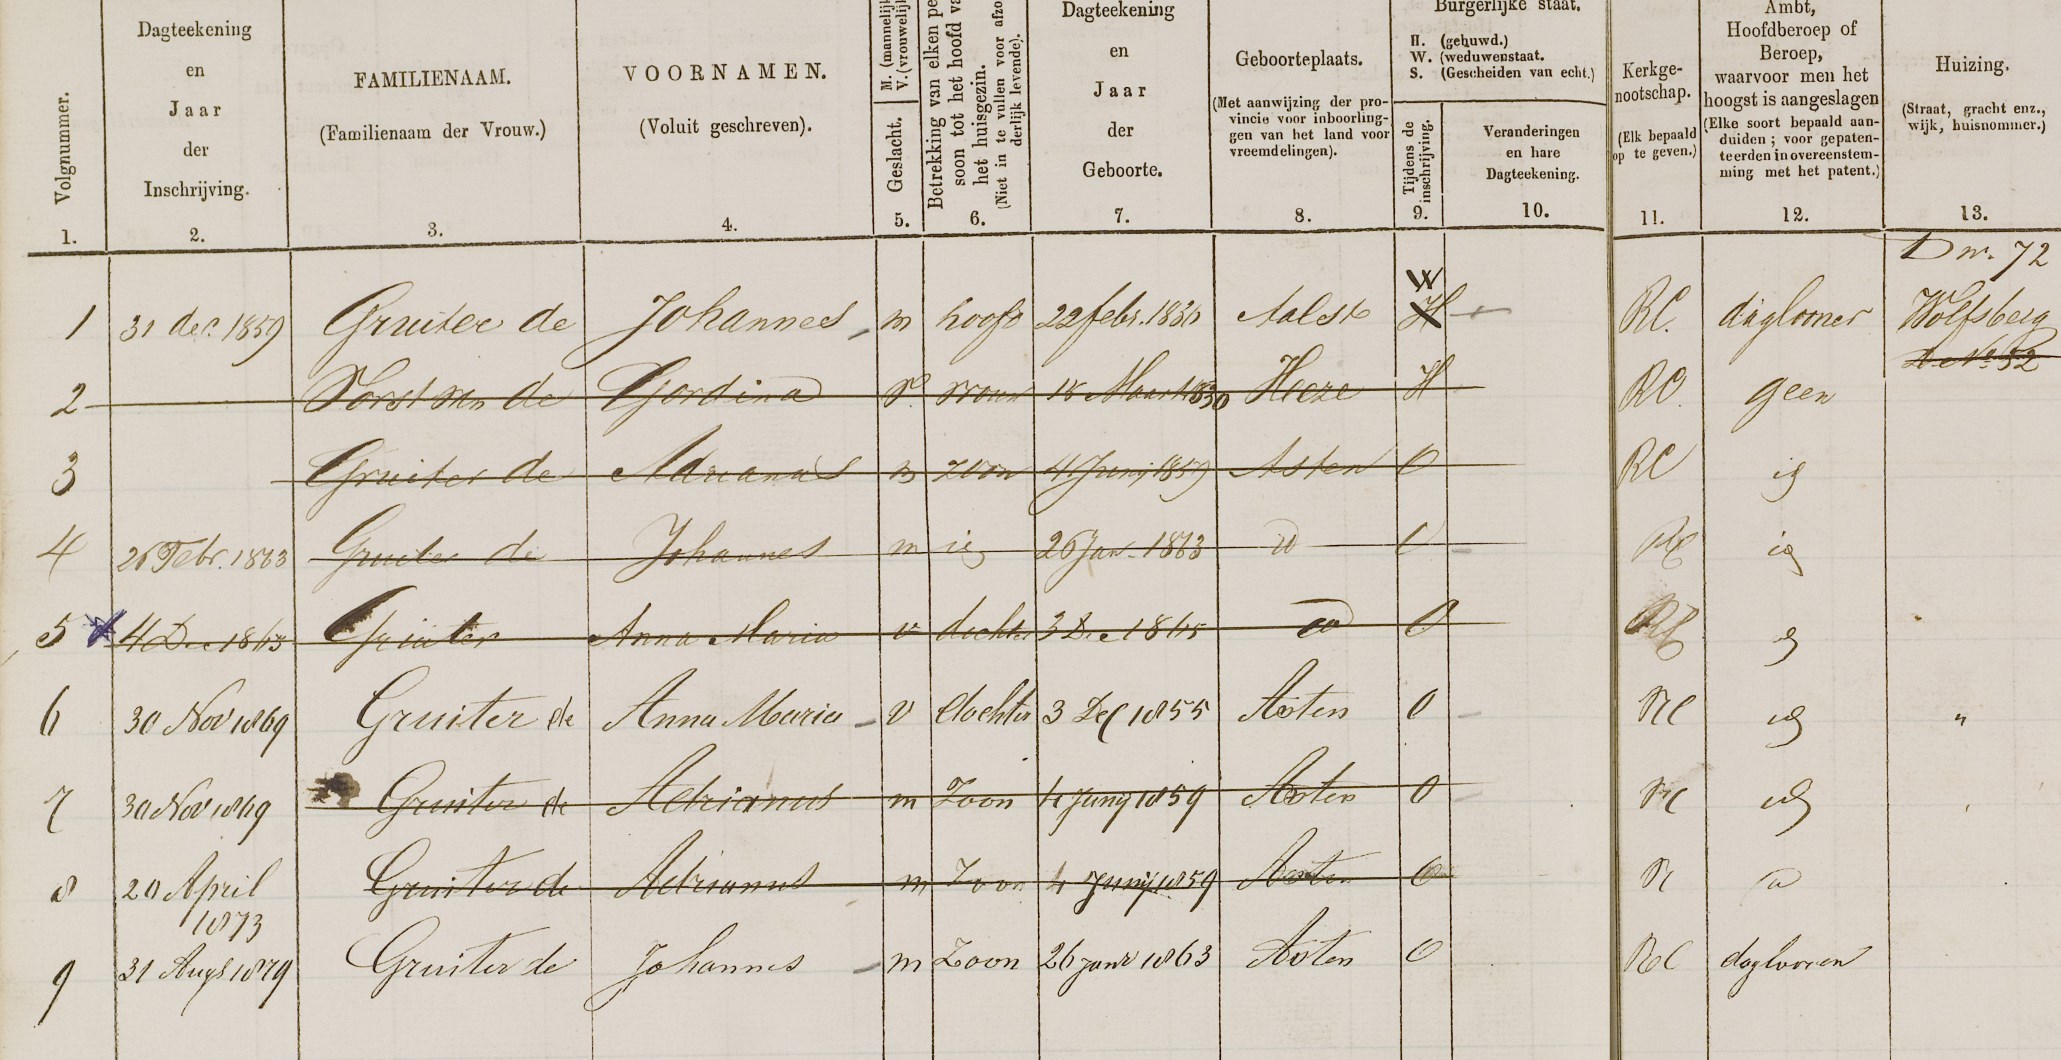 Volgnummer.
1.
Dagteekening
en
Jaar
der
Inschrijving.
2.
FAMILIENAAM.
(Familienaam der Vrouw.)
3.
VOORNAMEN.
(Voluit geschreven).
4.
M. (mannelijk
V. (vrouwelijk
Geslacht.
5.
Betrekking van elken per
soon tot het hoofd va
het huisgezin.
(Niet in te vullen voor afzon
derlijk levende).
6.
Dagteekening
en
Jaar
der
Geboorte.
7.
Geboorteplaats.
(Met aanwijzing der pro-
vincie voor inboorlin-
gen van het land voor
vreemdelingen).
8.
Burgerlijke staat.
H. (gehuwd.)
W. (weduwenstaat.
S. (Gescheiden van echt.)
Tijdens de
inschrijving.
9.
Veranderingen
en hare
Dagteekening.
10.
Kerkge-
nootschap.
(Elk bepaald
op te geven.)
11.
Ambt,
Hoofdberoep of
Beroep,
waarvoor men het
hoogst is aangeslagen
(Elke soort bepaald aan-
duiden; voor gepaten-
teerden in overeenstem-
ming met het patent.)
12.
Huizing.
(Straat, gracht enz.,
wijk, huisnommer.)
13.
D nr. 72
W
1 31 dec. 1859 Gruiter de Johannes m hoofd 22 febr. 1830 Aalst H RC. daglooner Wolfsberg
D No. 52
2 Vorst van de Gordina V. vrouw 18 Maart 1830 Heeze H RC. geen
3 Gruiter de Adrianus m zoon 4 Junij 1859 Asten O RC id
4 26 Febr. 1863 Gruiter de Johannes m id 26 Jan. 1863 id O RC id
5 4 Dec 1865 Gruiter Anna Maria v dochter 3 Dec 1865 id O RC id
6 30 Nov 1869 Gruiter de Anna Maria v dochter 3 Dec 1855 Asten O RC id "
7 30 Nov 1869 Gruiter de Adrianus m Zoon 4 Junij 1859 Asten O RC id
8 20 April Gruiter de Adrianus m Zoon 4 Junij 1859 Asten O R id
1873
9 31 Augs 1879 Gruiter de Johannes m Zoon 26 Janr 1863 Asten O RC daglooner